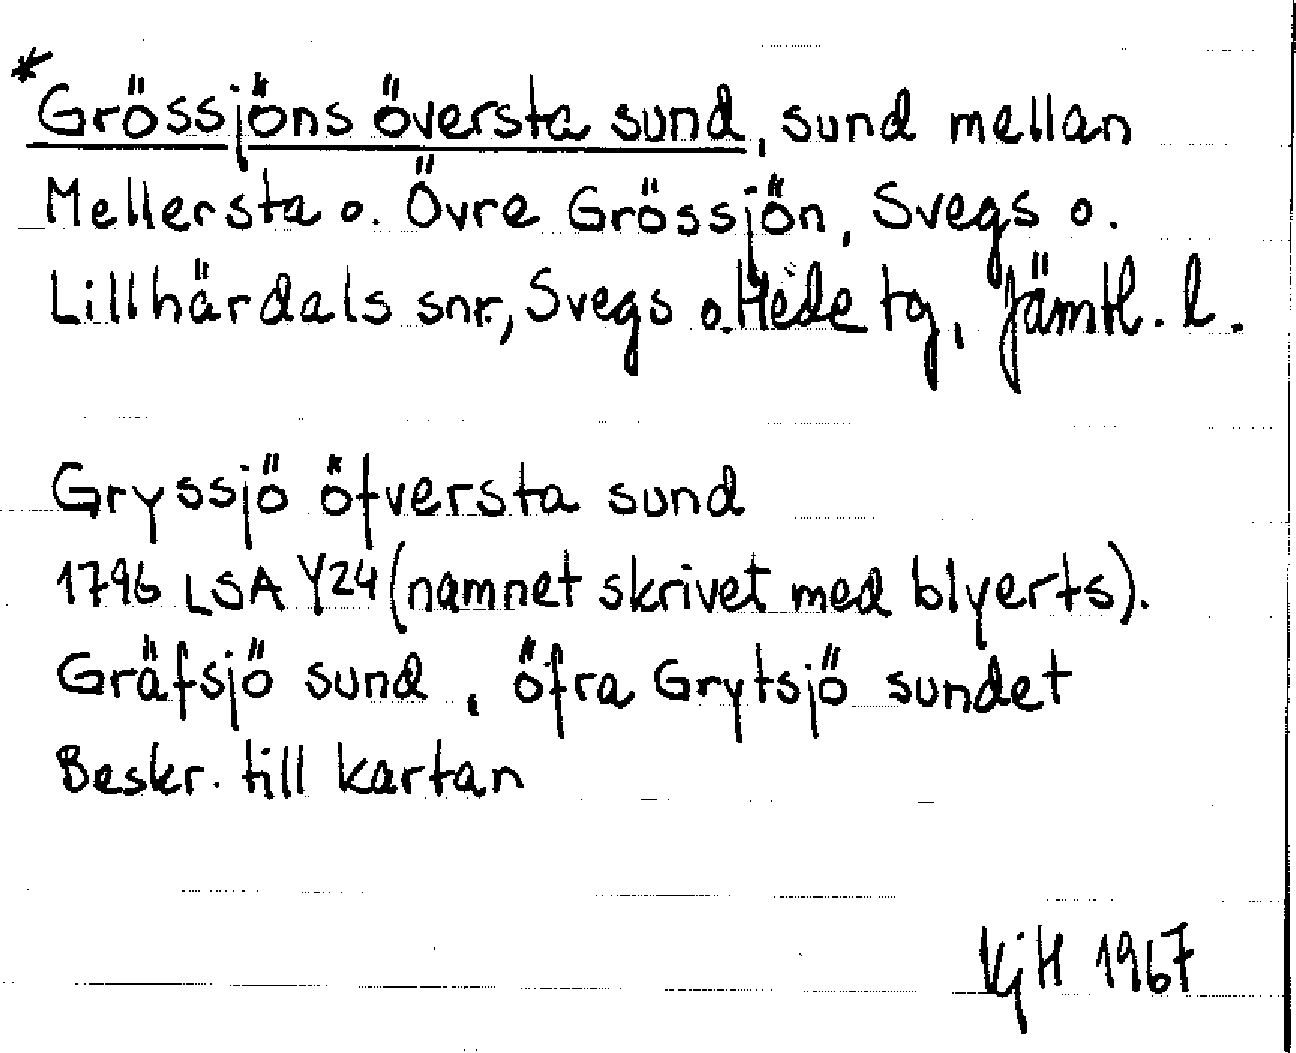 *Grössjöns översta sund, sund mellan
Mellersta o. Övre Grössjön, Svegs o.
Lillhärdals snr, Svegs o. Hede tg, Jämtl. l.
Gryssjö öfversta sund
1796 LSA Y24 (namnet skrivet med blyerts).
Gräfsjö sund, öfra Grytsjö sundet
Beskr. till kartan
KjH 1967